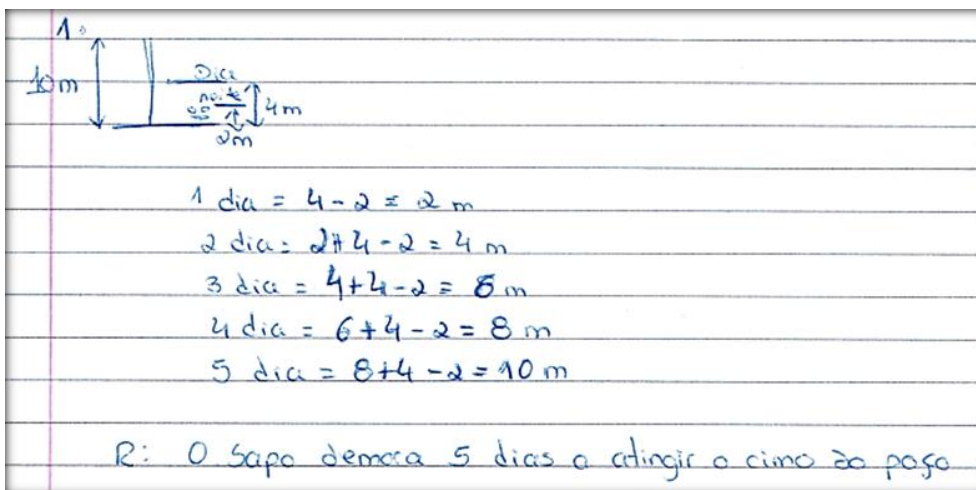 1.
10 m
Dia
noite
4 m
2m
1 dia = 4 - 2 = 2 m
2 dia = 2+4 - 2 = 4 m
3 dia = 4+4-2 = 6 m
4 dia = 6+4-2 = 8 m
5 dia = 8+4-2 = 10 m
R: O Sapo demora 5 dias a atingir o cimo do poço